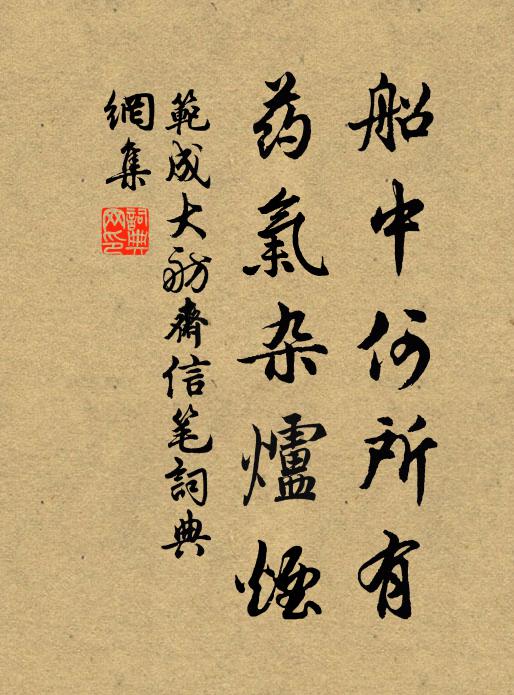 船中何所有
药氣杂爐煙
範成大舫齋信笔詞典
網集
詞典
网印